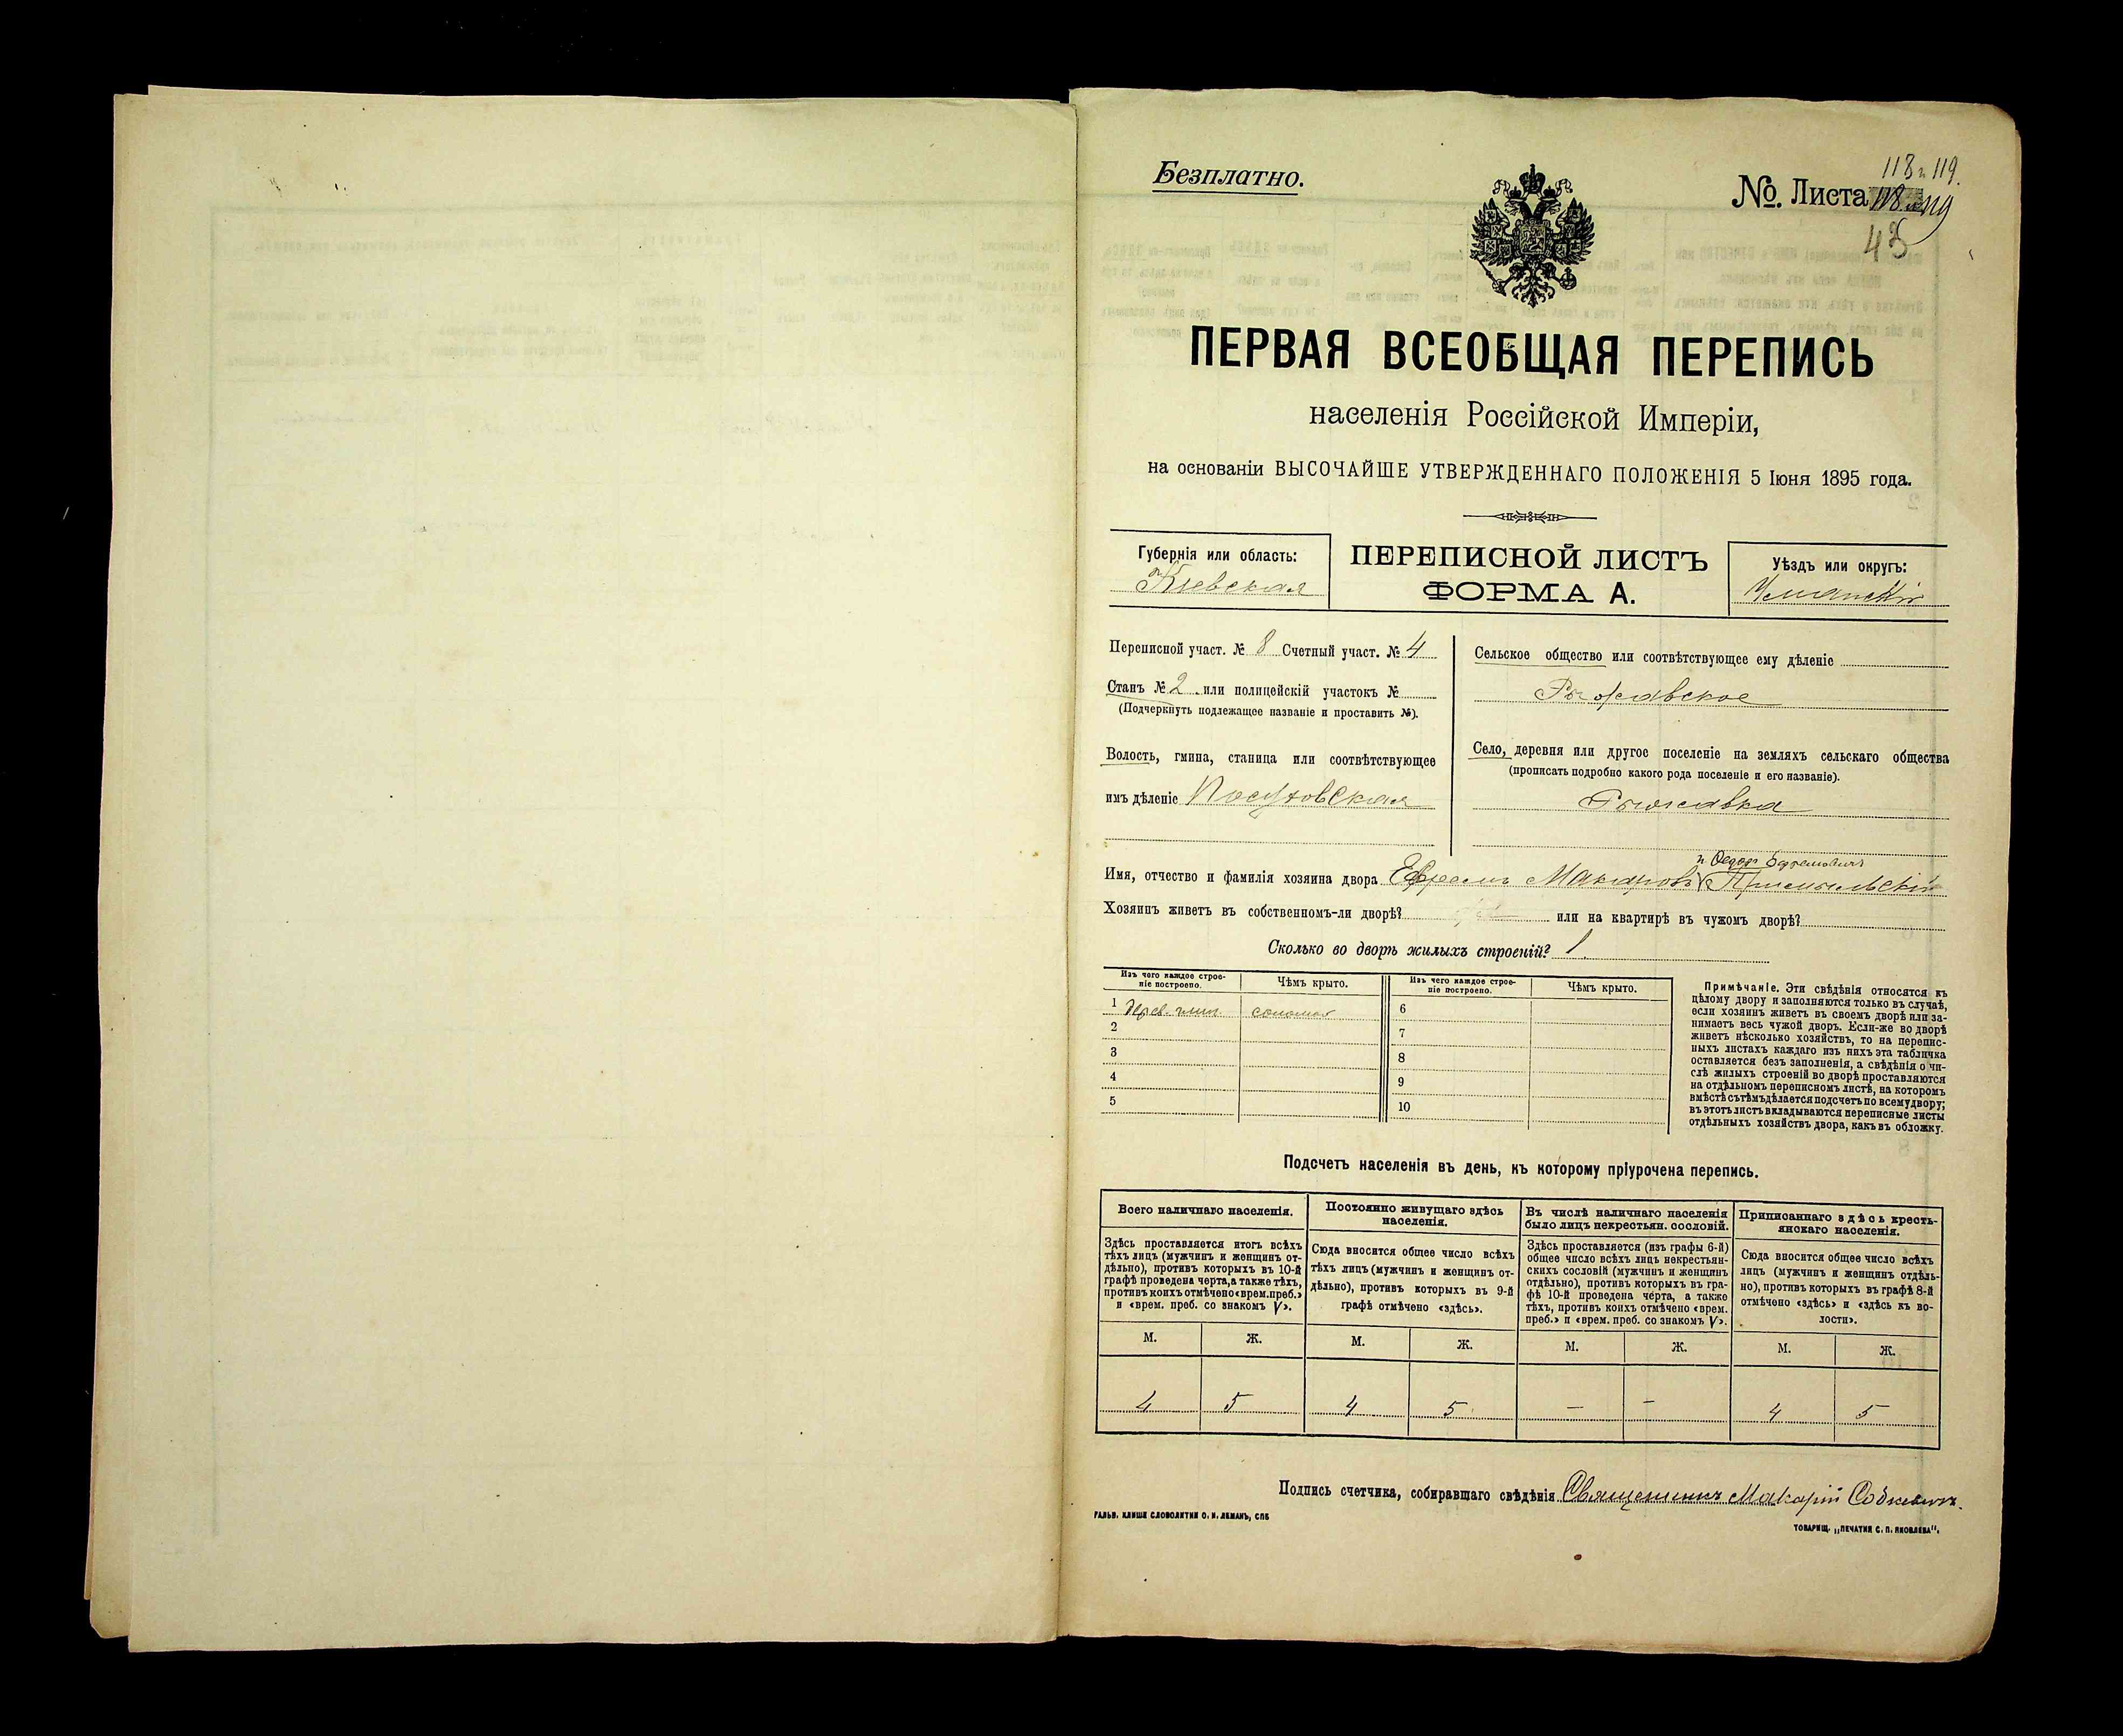 Безплатно.
118 и 119.
№. Листа 118 и 119
43
ПЕРВАЯ ВСЕОБЩАЯ ПЕРЕПИСЬ
населенія Россійской Имперіи,
на основаніи ВЫСОЧАЙШЕ УТВЕРЖДЕННАГО ПОЛОЖЕНІЯ 5 Іюня 1895 года.
Губернія или область:
Кіевская
ПЕРЕПИСНОЙ ЛИСТЪ
ФОРМА А.
Уѣздъ или округъ:
Уманскій
Переписной участ. № 8 Счетный участ. № 4
Станъ № 2 или полицейскій участокъ №
(Подчеркнуть подлежащее названіе и проставить №).
Волость, гмина, станица или соотвѣтствующее
имъ дѣленіе Посуховская
Сельское общество или соотвѣтствующее ему дѣленіе
Рыжавское
Село, деревня или другое поселеніе на земляхъ сельскаго общества
(прописать подробно какого рода поселеніе и его названіе).
Рыжавка
и Ѳедоръ
Имя, отчество и фамилія хозяина двора Ефремъ Макаровъ
Хозяинъ живетъ въ собственномъ-ли дворѣ? или на квартирѣ въ чужомъ дворѣ?
Сколько во дворѣ жилыхъ строеній? 1.
Изъ чего каждое строе-
ніе построено.
Чѣмъ крыто.
Изъ чего каждое строе-
ніе построено.
Чѣмъ крыто.
1 Дерев. глин. соломою
2
3
4
5
6
7
8
9
10
Примѣчаніе. Эти свѣдѣнія относятся къ
цѣлому двору и заполняются только въ случаѣ,
если хозяинъ живетъ въ своемъ дворѣ или за-
нимаетъ весь чужой дворъ. Если-же во дворѣ
живетъ нѣсколько хозяйствъ, то на перепис-
ныхъ листахъ каждаго изъ нихъ эта табличка
оставляется безъ заполненія, а свѣдѣнія о чи-
слѣ жилыхъ строеній во дворѣ проставляются
на отдѣльномъ переписномъ листѣ, на которомъ
вмѣстѣ съ тѣмъ дѣлается подсчетъ по всему двору;
въ этотъ листъ вкладываются переписные листы
отдѣльныхъ хозяйствъ двора, какъ въ обложку.
Подсчетъ населенія въ день, къ которому пріурочена перепись.
Всего наличнаго населенія.
Здѣсь проставляется итогъ всѣхъ
тѣхъ лицъ (мужчинъ и женщинъ от-
дѣльно), противъ которыхъ въ 10-й
графѣ проведена черта, а также тѣхъ,
противъ коихъ отмѣчено «врем. преб.»
и «врем. преб. со знакомъ V».
Постоянно живущаго здѣсь
населенія.
Сюда вносится общее число всѣхъ
тѣхъ лицъ (мужчинъ и женщинъ от-
дѣльно), противъ которыхъ въ 9-й
графѣ отмѣчено «здѣсь».
Въ числѣ наличнаго населенія
было лицъ некрестьян. сословій.
Здѣсь проставляется (изъ графы 6-й)
общее число всѣхъ лицъ некрестьян-
скихъ сословій (мужчинъ и женщинъ
отдѣльно), противъ которыхъ въ гра-
фѣ 10-й проведена черта, а также
тѣхъ, противъ коихъ отмѣчено «врем.
преб.» и «врем. преб. со знакомъ V».
Приписаннаго здѣсь кресть-
янскаго населенія.
Сюда вносится общее число всѣхъ
лицъ (мужчинъ и женщинъ отдѣль-
но), противъ которыхъ въ графѣ 8-й
отмѣчено «здѣсь» и «здѣсь къ во-
лости».
М. Ж. М. Ж. М. Ж. М. Ж.
4 5 4 5 — — 4 5
Подпись счетчика, собиравшаго свѣдѣнія Священникъ Макарій Собкевичъ.
ГАЛЬВ. КЛИШЕ СЛОВОЛИТНИ О. И. ЛЕМАНЪ, СПБ
ТОВАРИЩ. „ПЕЧАТНЯ С. П. ЯКОВЛЕВА".